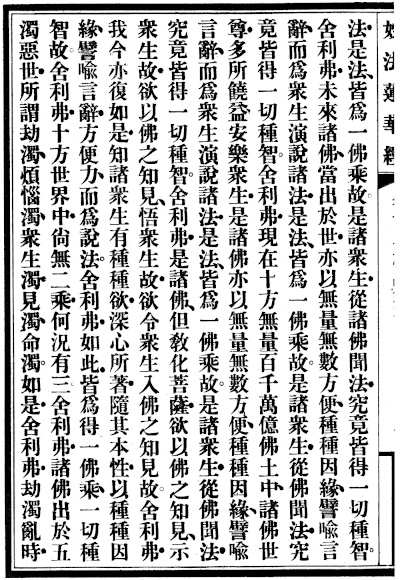 妙法蓮華經
法是法皆爲一佛乘故是諸衆生從諸佛聞法究竟皆得一切種智
舍利弗未來諸佛當出於世亦以無量無數方便種種因緣譬喻言
辭而爲衆生演說諸法是法皆爲一佛乘故是諸衆生從佛聞法究
竟皆得一切種智舍利弗現在十方無量百千萬億佛土中諸佛世
尊多所饒益安樂衆生是諸佛亦以無量無數方便種種因緣譬喻
言辭而爲衆生演說諸法是法皆爲一佛乘故是諸衆生從佛聞法
究竟皆得一切種智舍利弗是諸佛但教化菩薩欲以佛之知見示
衆生故欲以佛之知見悟衆生故欲令衆生入佛之知見故舍利弗
我今亦復如是知諸衆生有種種欲深心所著隨其本性以種種因
緣譬喻言辭方便力而爲說法舍利弗如此皆爲得一佛乘一切種
智故舍利弗十方世界中尚無二乘何況有三舍利弗諸佛出於五
濁惡世所謂劫濁煩惱濁衆生濁見濁命濁如是舍利弗劫濁亂時